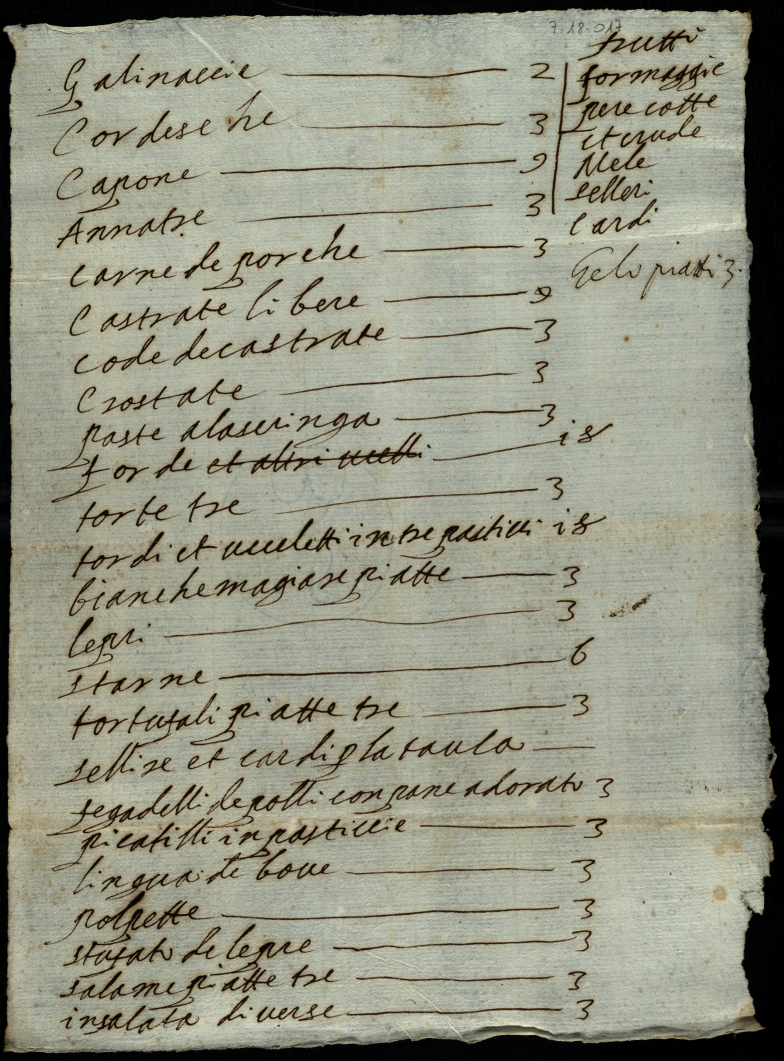 7-18-017
Galinaccie 2
Cordesche 3
Capone 9
Annatre 3
Carne de porche 3
Castrate libere 9
code de castrate 3
Crostate 3
paste a la seringa 3
torde et altri ucelli i8
torte tre 3
tordi et uceletti in tre pasticci i8
bianche magiare piatte 3
lepri 3
starne 6
tortufali piatte tre 3
sellire et cardi p la taula
fegadelli de polli con pane adorato 3
picatilli in pasticcie 3
lingua de boue 3
polpette 3
stufato de lepre 3
salame piatte tre 3
insalata diuerse 3
frutti
formaggie
pere cotte
et crude
Mele
selleri
Cardi
Gelo piatti 3.